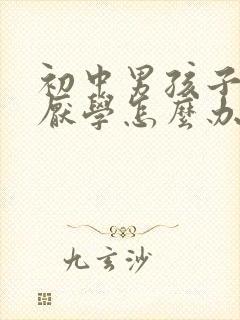 初中男孩子
厭學怎麼办
九玄沙